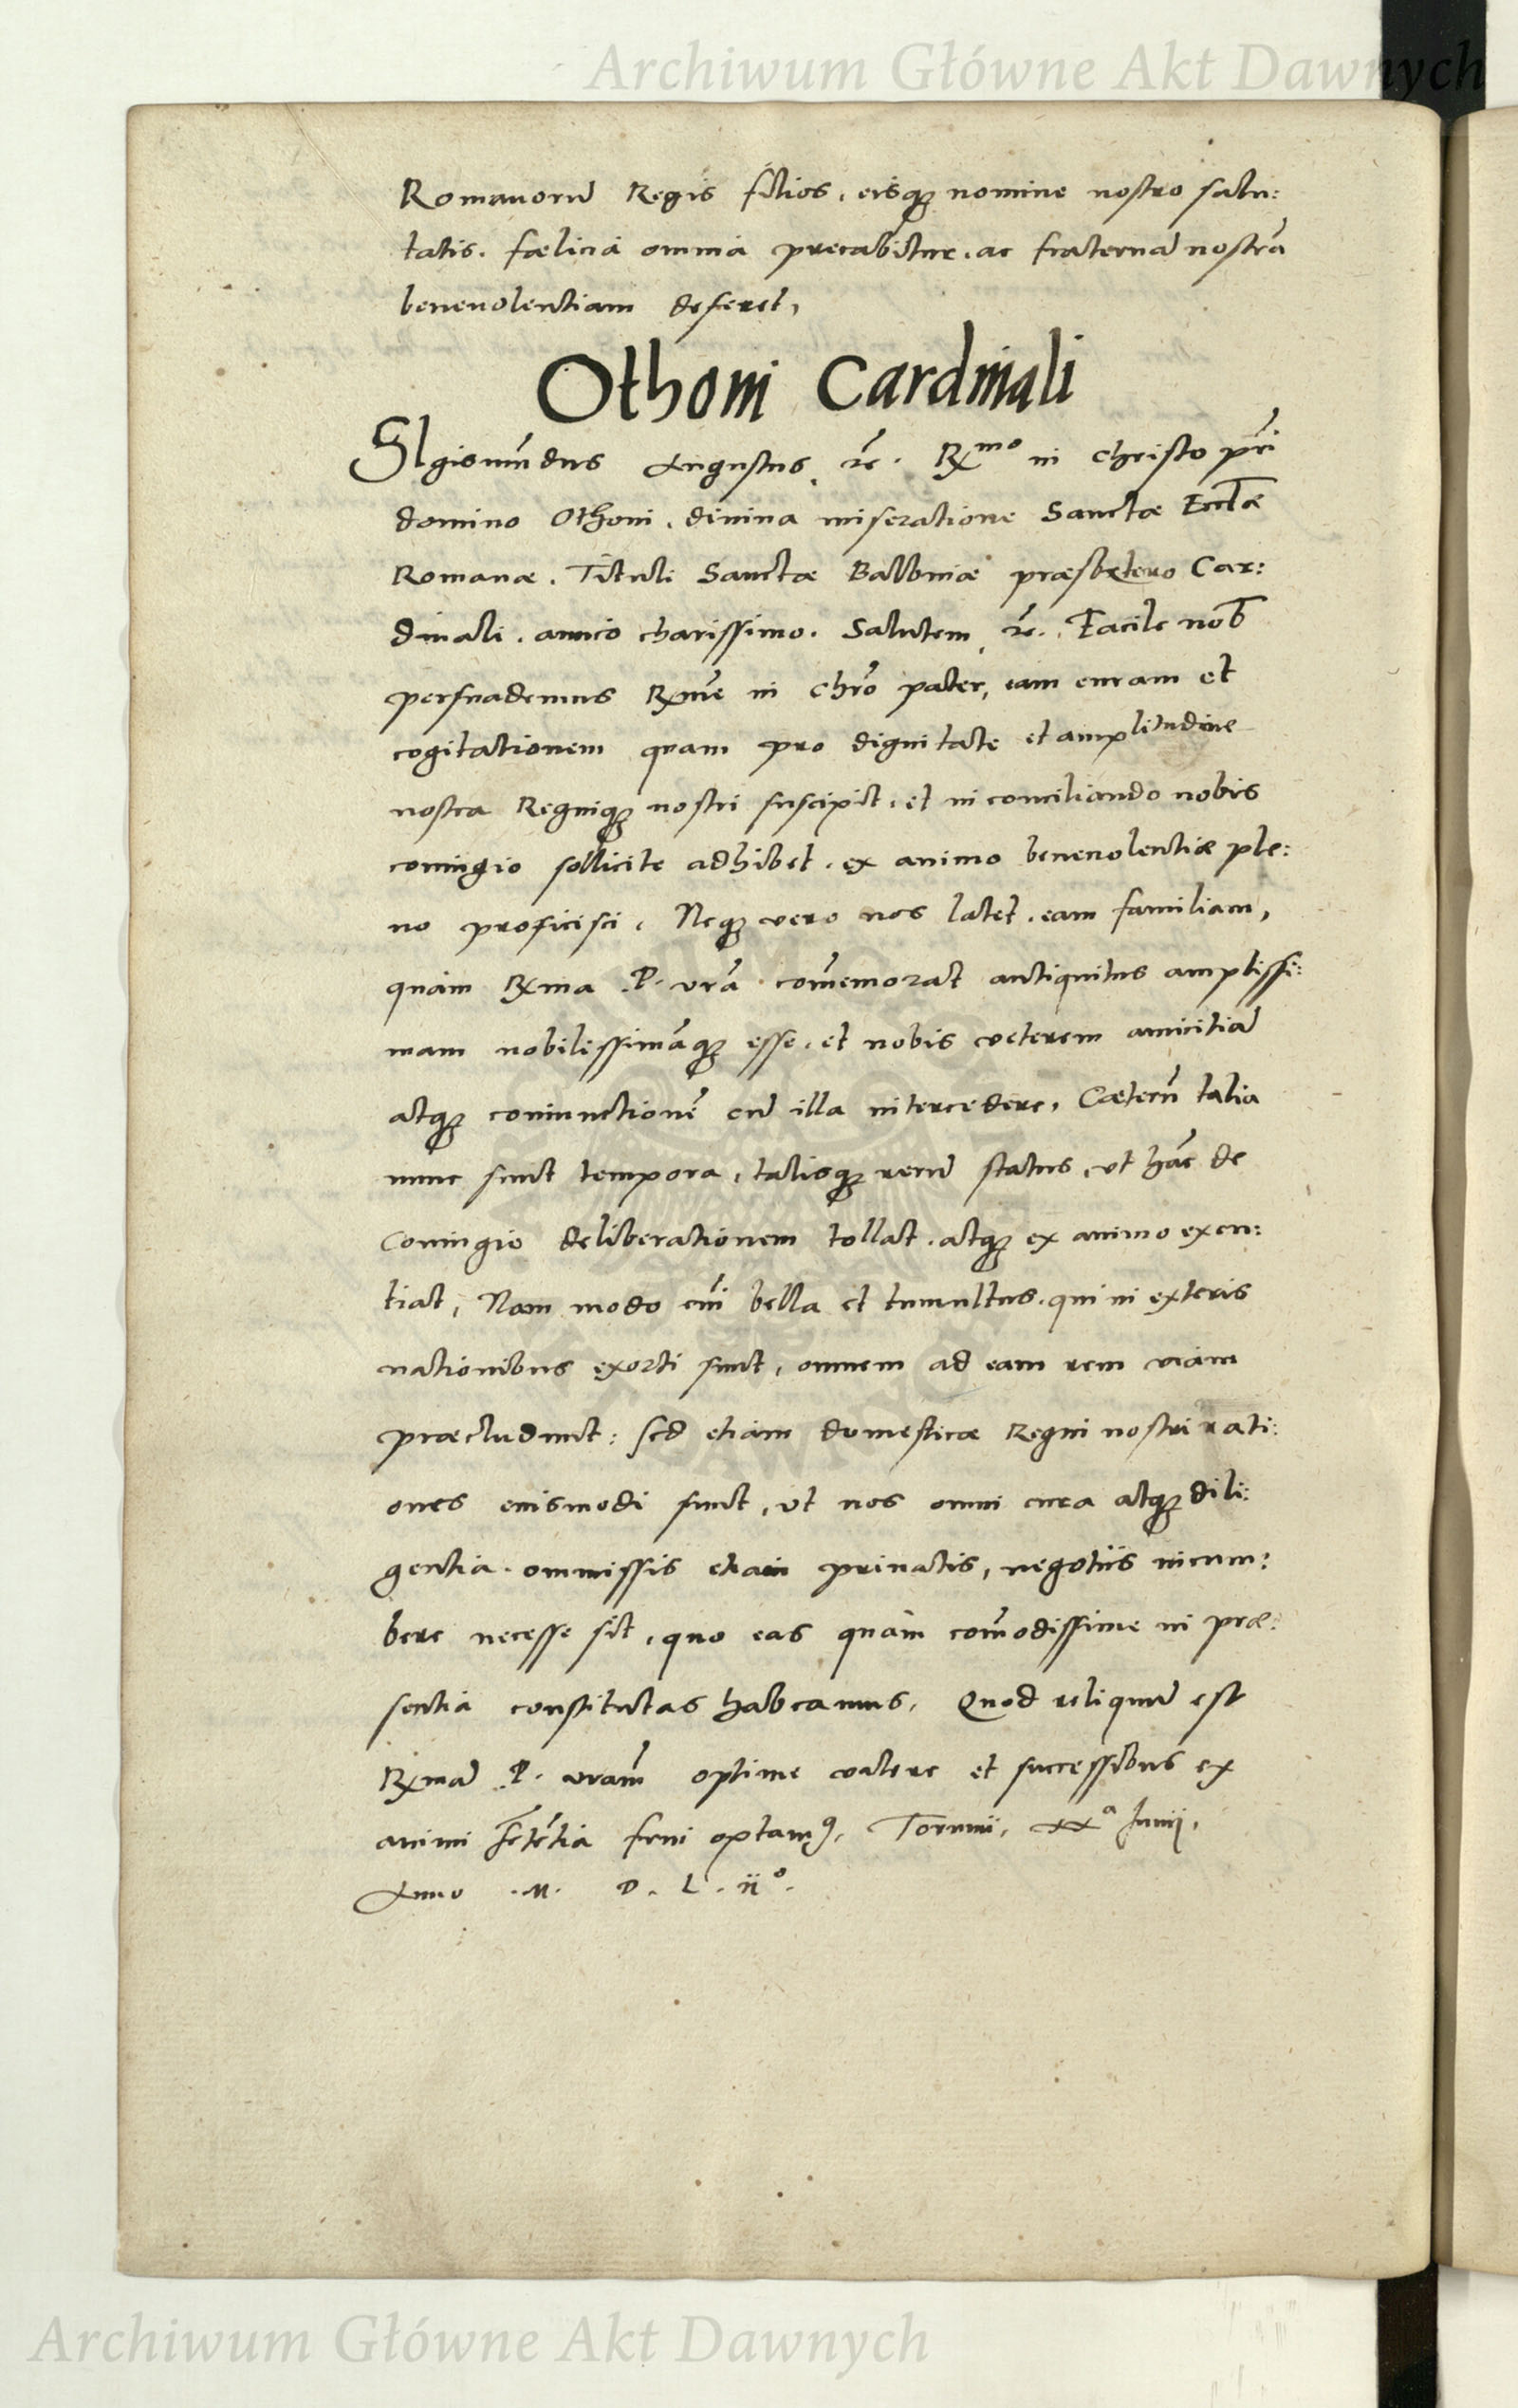 Archiwum Główne Akt Dawnych
Romanorũ Regis filios, eisq; nomine nostro salu:
tatis. fælicia omnia precabitur. ac fraternã nostrã
benevolentiam deferet,
Othoni Cardinali
SIgismũdus Augustus, &c. Rx̃mo in Christo pr̃i
domino Othoni, divina miseratione Sanctæ Eccl̃æ
Romanæ. Tituli Sanctæ Balbinæ præsbytero Car:
dinali. amico charissimo. Salutem, &c. Facile nob̃
persuademus Rx̃me in Chr̃o pater, eam curam et
cogitationem quam pro dignitate et amplitudine
nostra Regniq; nostri suscipit, et in conciliando nobis
coniugio sollicite adhibet. ex animo benevolentiæ ple:
no proficisci, Neq; vero nos latet. eam familiam,
quàm Rx̃ma P. vrã com̃emorat antiquitus amplissi:
mam nobilissimãq; esse, et nobis veterem amicitiã
atq; coniunctionẽ cũ illa intercedere, Cæterũ talia
nunc sunt tempora, talisq; rerũ status, ut hãc de
Coniugio deliberationem tollat. atq; ex animo excu:
tiat, Nam modo em̃ bella et tumultus. qui in exteris
nationibus exorti sunt, omnem ad eam rem viam
præcludunt: sed etiam domesticæ Regni nostri rati:
ones eiusmodi sunt, ut nos omni cura atq; dili:
gentia. ommissis etiam privatis, negotiis incum:
bere necesse sit, quo eas quàm com̃odissime in præ:
sentia constitutas habeamus, Quod reliquũ est
Rx̃mã P. vram̃ optime valere et successibus ex
animi sẽtẽtia frui optam9, Torunii, xxª Junij,
Anno .M. D. L. iiº.
Archiwum Główne Akt Dawnych